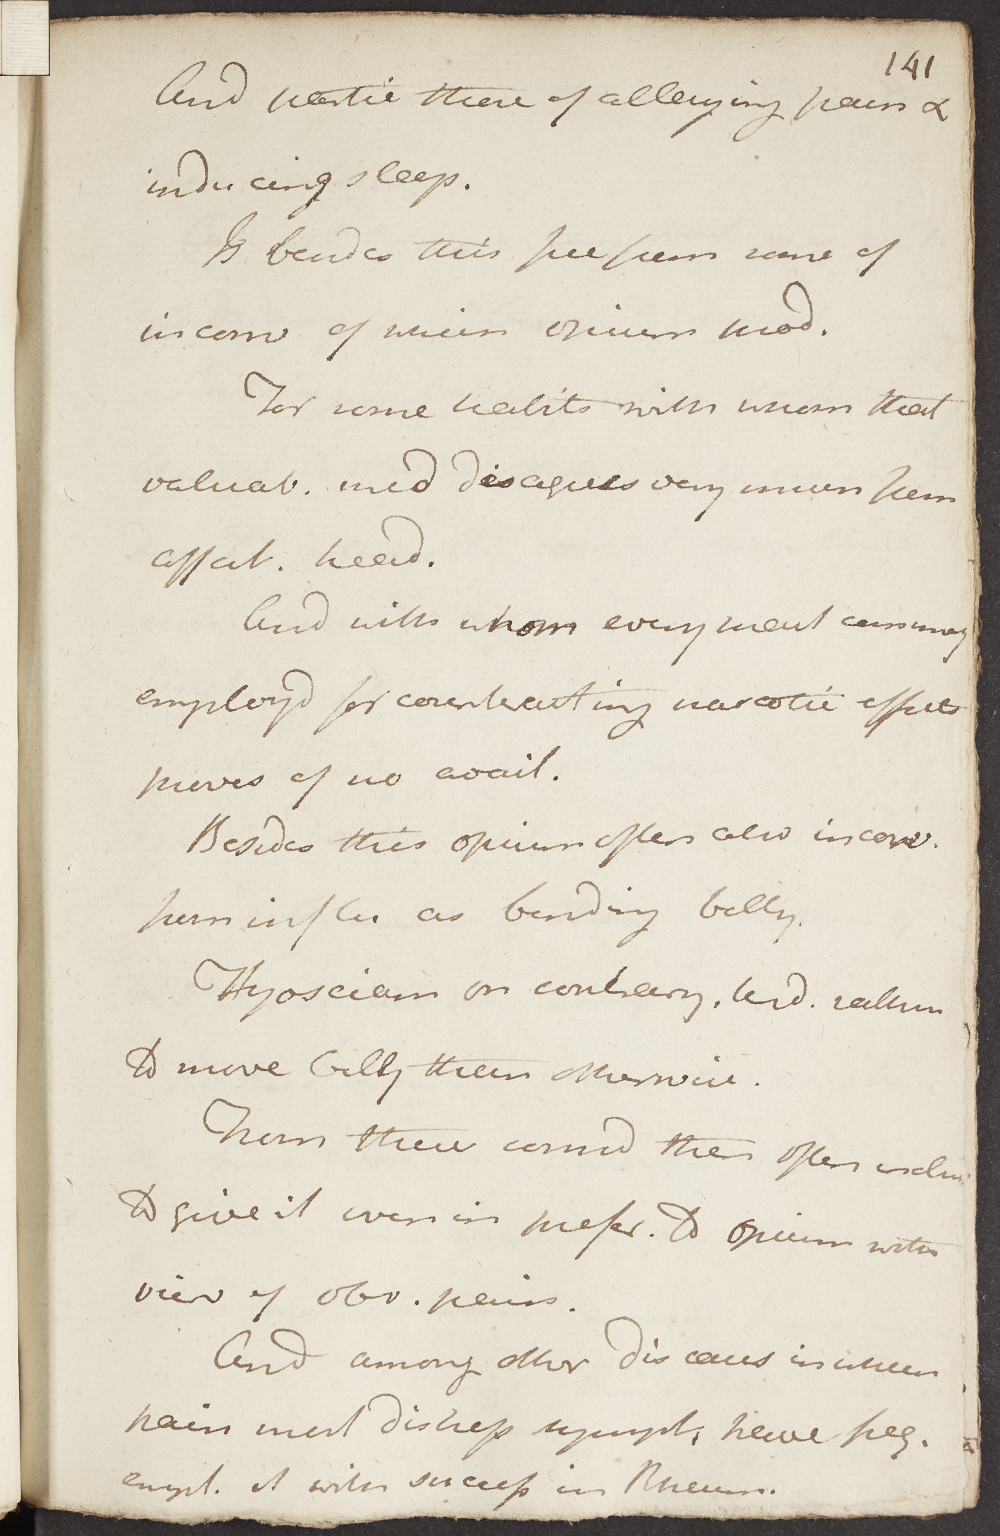 141
And partic those of allaying pain &
inducing sleep.
Is besides this free from some of
inconv of which opium prod.
For some habits with whom that
valuab. med disagrees very much from
affect. head.
And with whom every means can may
employ'd for counteracting narcotic effects
proves of no avail.
Besides this opium often also inconv.
from influ. as binding belly.
Hyosciam on contrary, tend. rathern
to move belly than otherwise.
From these consid then often inclin
to give it even in prefer. to opium with
view of obv. pain.
And among other diseases in which
pain most distress sympt, have freq.
empl. it with success in Rheum.